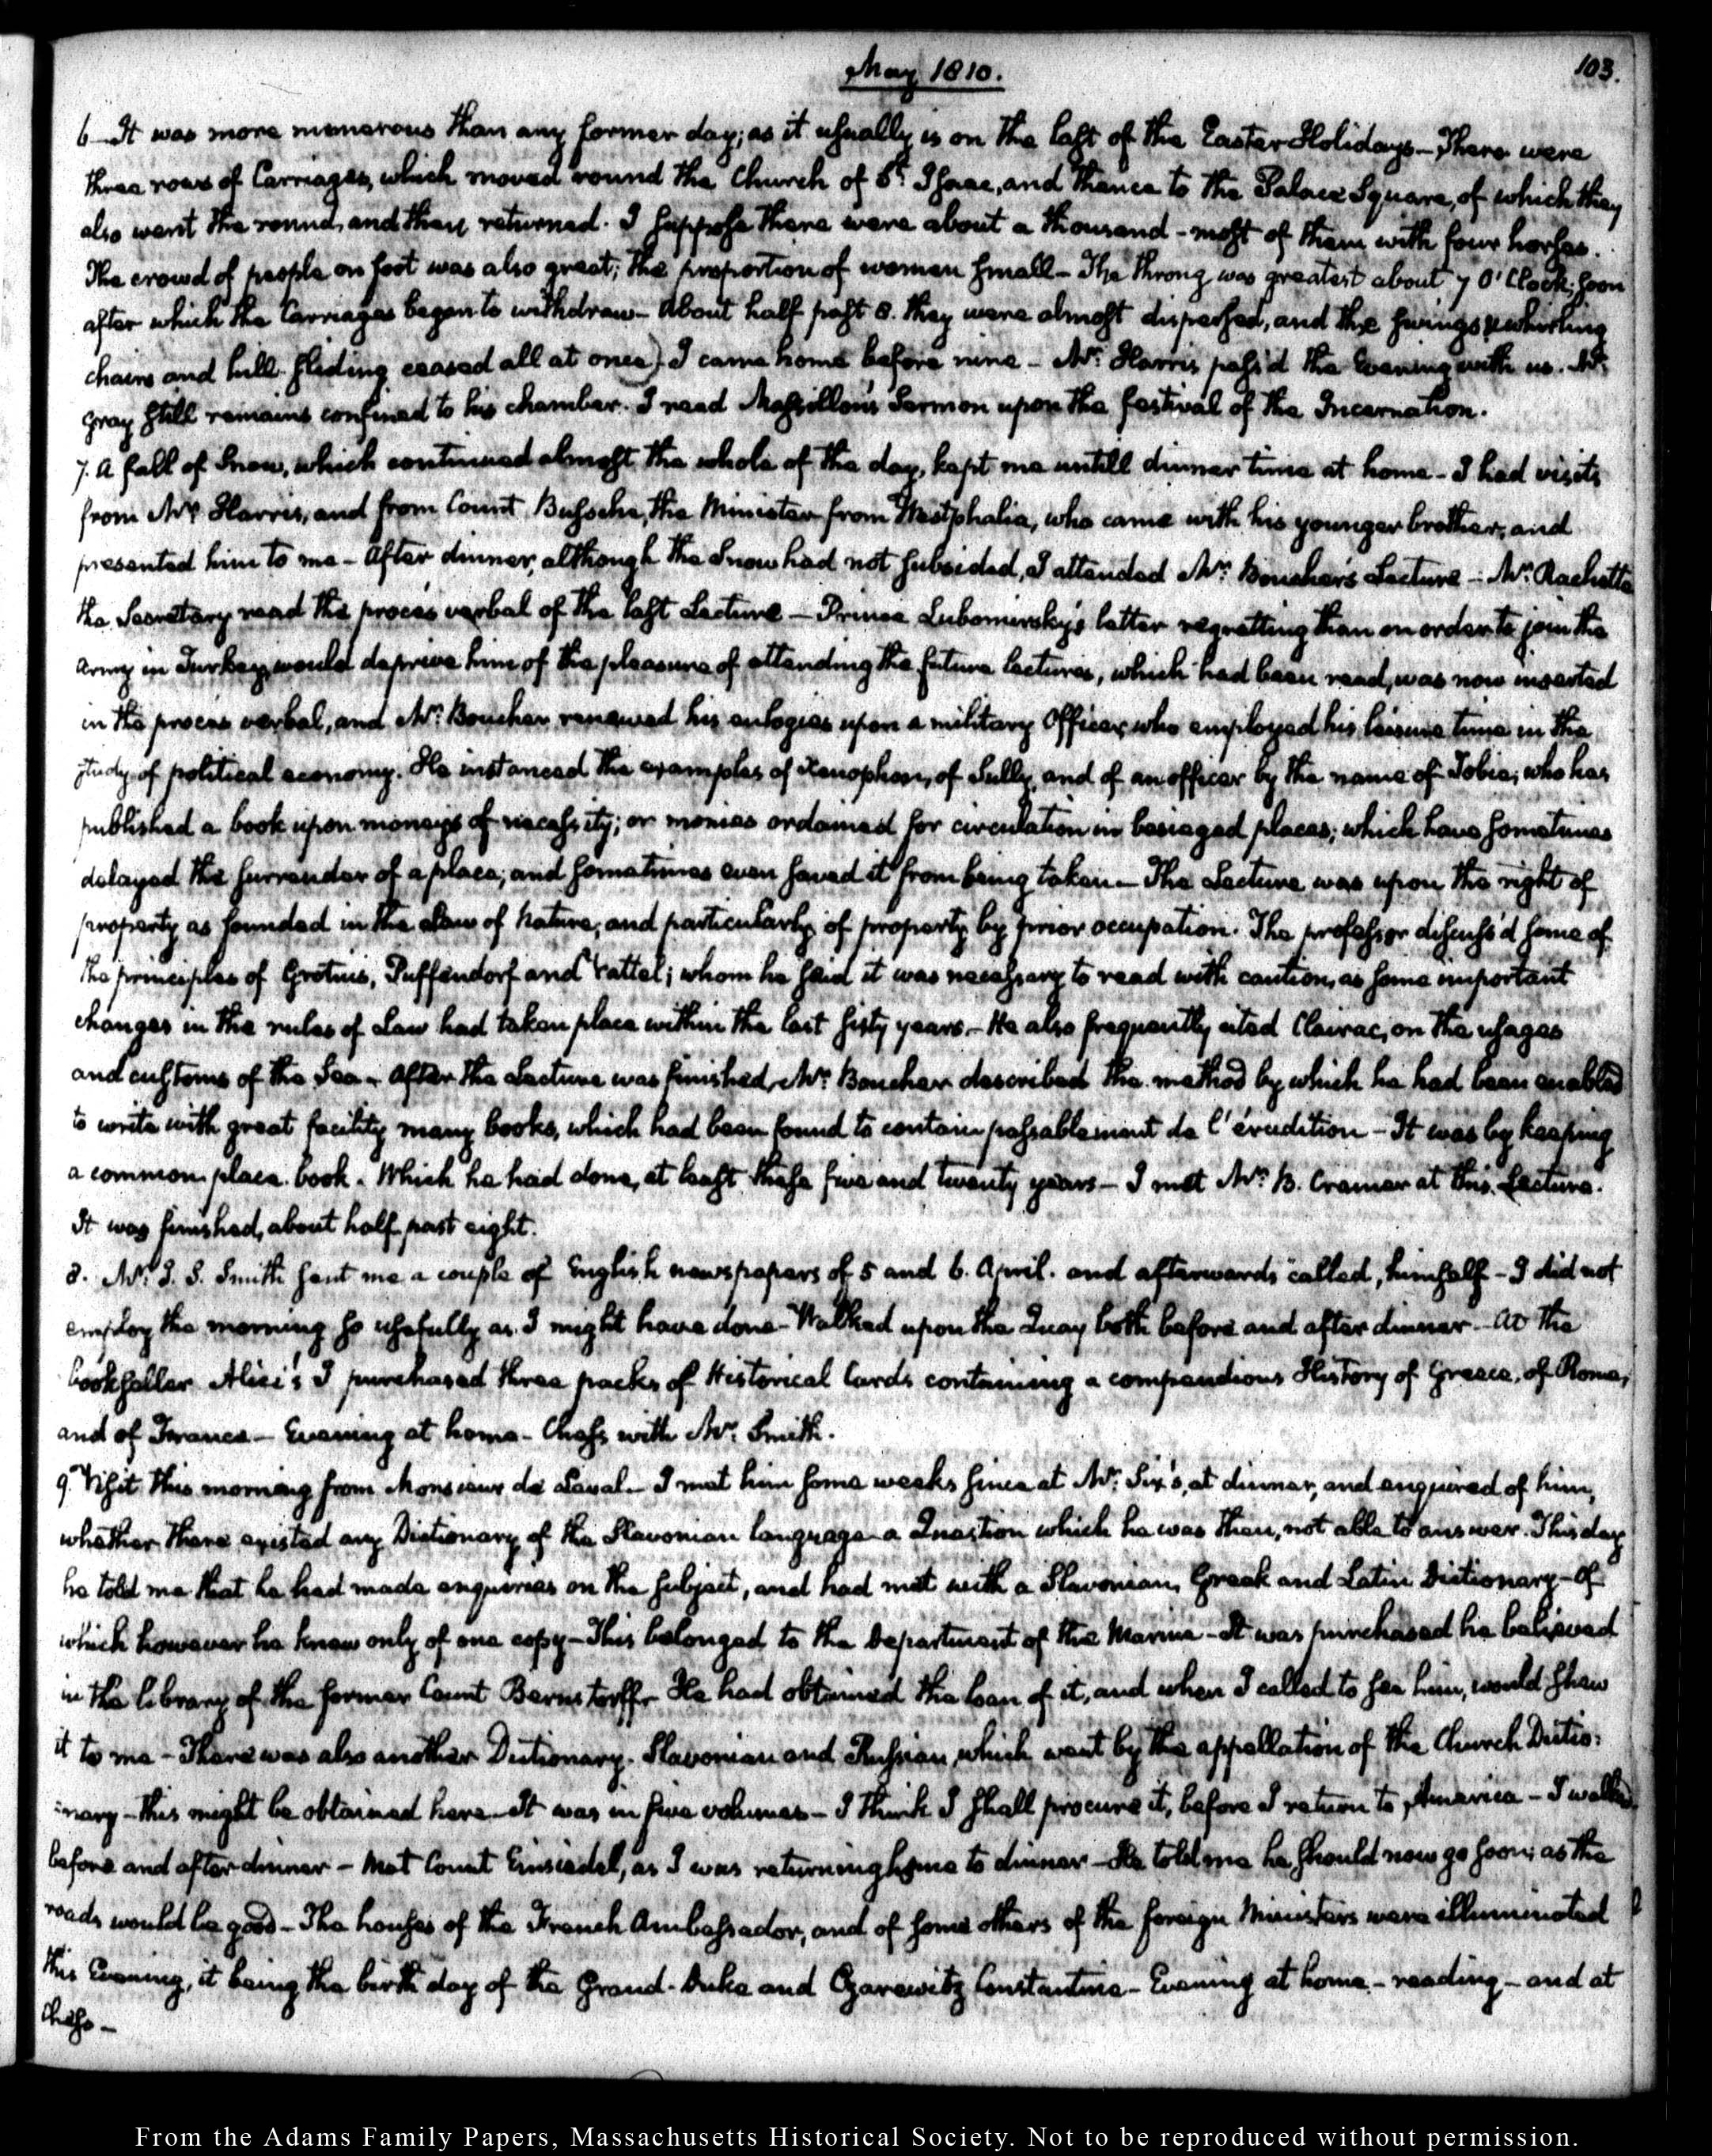 May 1810.
103.
6. It was more numerous than any former day; as it usually is on the last of the Easter Holidays— There were
three rows of Carriages, which moved round the Church of St. Isaac, and thence to the Palace Square, of which they
also went the round, and then returned. I suppose there were about a thousand - most of them with four horses.
The crowd of people on foot was also great; the proportion of women small— The throng was greatest about 7 O'Clock; soon
after which the Carriages began to withdraw— About half past 8. they were almost dispersed, and the swings, whirling
chairs and hill-sliding ceased all at once) I came home before nine— Mr. Harris pass'd the Evening with us. Mr.
Gray still remains confined to his chamber. I read Massillon's Sermon upon the festival of the Incarnation.
7. A fall of Snow, which continued almost the whole of the day, kept me untill dinner time at home— I had visits
from Mr. Harris, and from Count Bussche, the Minister from Westphalia, who came with his younger brother, and
presented him to me— After dinner, although the Snow had not subsided, I attended Mr. Boucher's Lecture— Mr. Rachette
the Secretary read the procès verbal of the last Lecture— Prince Lubomirsky's letter regretting than an order to join the
army in Turkey, would deprive him of the pleasure of attending the future lectures, which had been read, was now inserted
in the procès verbal, and Mr. Boucher renewed his eulogies upon a military Officer, who employed his leisure time in the
study of political economy. He instanced the examples of Xenophon, of Sully, and of an officer by the name of Tobie, who has
published a book upon moneys of necessity; or monies ordained for circulation in besieged places; which have sometimes
delayed the surrender of a place, and sometimes even saved it from being taken— The Lecture was upon the right of
property as founded in the Law of Nature, and particularly of property by prior occupation. The professor discuss'd some of
the principles of Grotius, Puffendorf and Vattel; whom he said it was necessary to read with caution, as some important
changes in the rules of Law had taken place within the last fifty years— He also frequently cited Clairac, on the usages
and customs of the Sea— After the Lecture was finished, Mr. Boucher described the method by which he had been enabled
to write with great facility many books, which had been found to contain passablement de l'érudition— It was by keeping
a common place book. Which he had done, at least these five and twenty years— I met Mr. B. Cramer at this Lecture.
It was finished, about half past eight.
8. Mr. J. S. Smith sent me a couple of English newspapers of 5 and 6. April. and afterwards called, himself— I did not
employ the morning so usefully as I might have done— Walked upon the Quay both before and after dinner— At the
bookseller Alici's I purchased three packs of Historical Cards containing a compendious History of Greece, of Rome,
and of France— Evening at home— Chess with Mr. Smith.
9. Visit this morning from Monsieur de Laval— I met him some weeks since at Mr. Six's, at dinner, and enquired of him,
whether there existed any Dictionary of the Slavonian language— a Question which he was then, not able to answer. This day
he told me that he had made enquiries on the subject, and had met with a Slavonian, Greek and Latin Dictionary— of
which however he knew only of one copy— This belonged to the Department of the Marine— It was purchased he believed
in the library of the former Count Bernstorff— He had obtained the loan of it, and when I called to see him, would shew
it to me— There was also another Dictionary. Slavonian and Russian, which went by the appellation of the Church Dictio:
:nary— this might be obtained here— It was in five volumes— I think I shall procure it, before I return to America— I walked
before and after dinner— Met Count Einsiedel, as I was returning home to dinner— He told me he should now go soon; as the
roads would be good— The houses of the French Ambassador, and of some others of the foreign Ministers were illuminated
this Evening, it being the birth day of the Grand-Duke and Czarewitz Constantine— Evening at home— reading— and at
Chess—
From the Adams Family Papers, Massachusetts Historical Society. Not to be reproduced without permission.